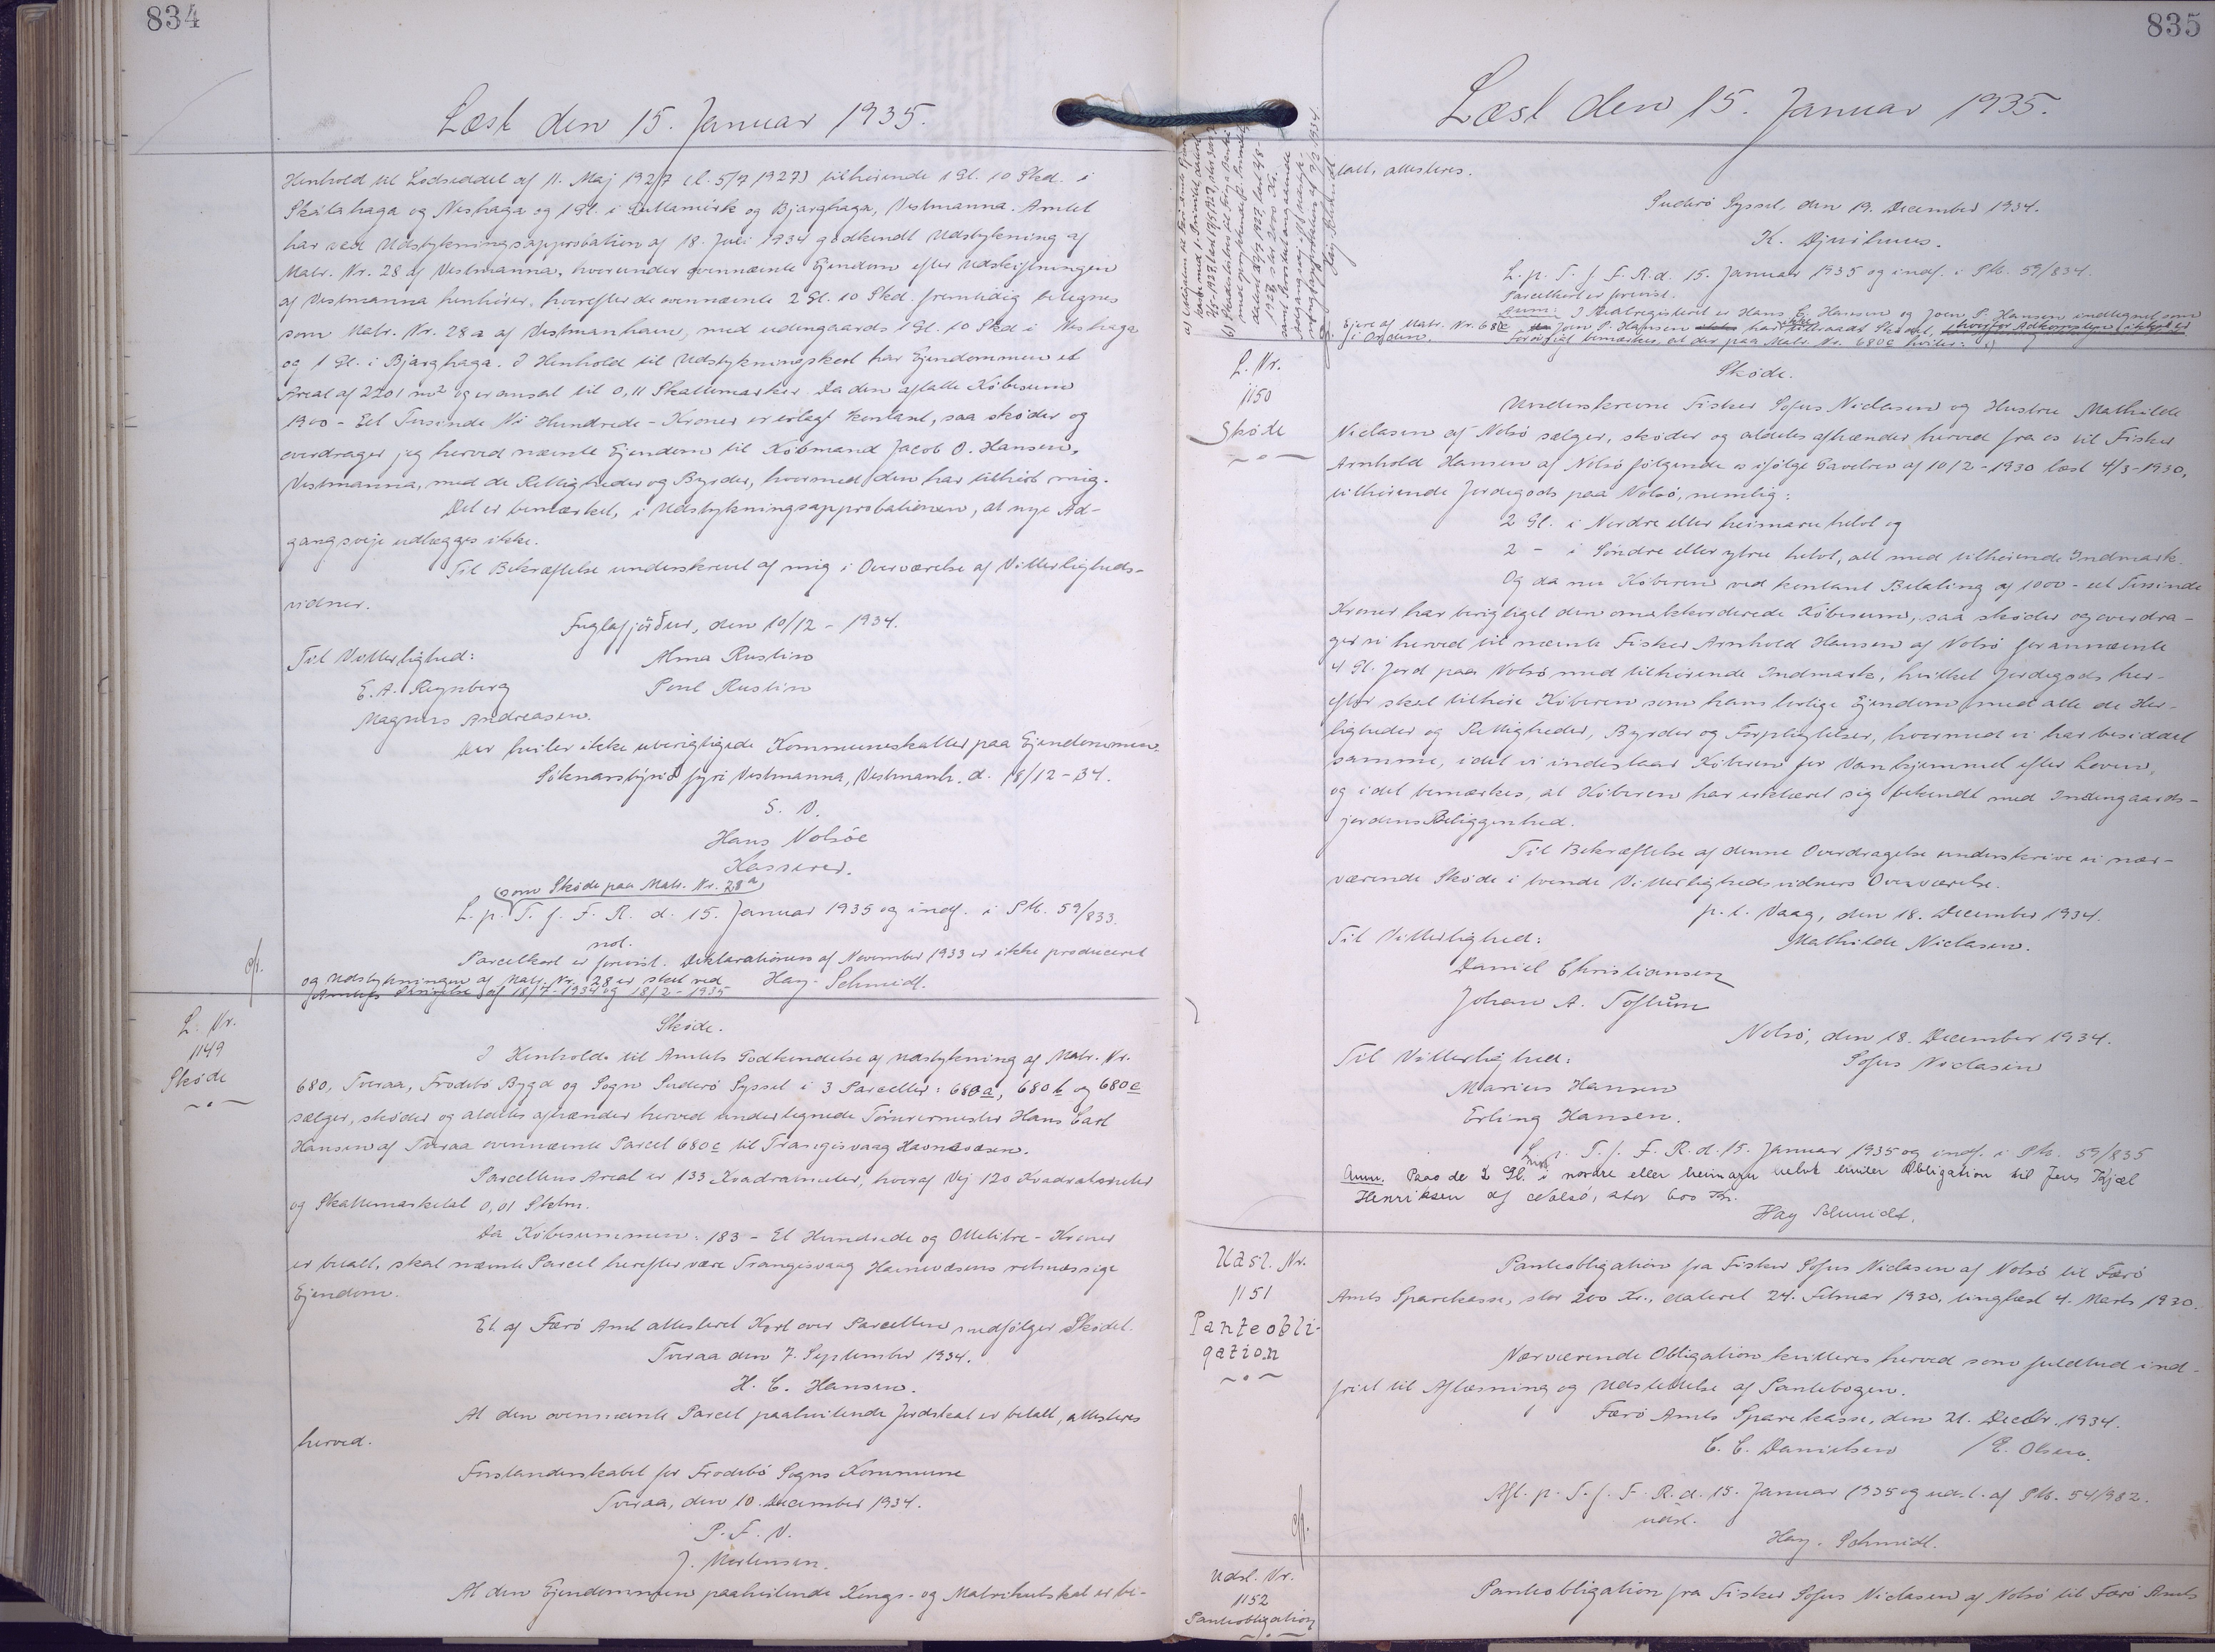 834
Læst den 15. Januar 1935.
Henhold til Lodseddel af 11. Maj 1927 (l. 5/7 1927) tilhørende 1 Gl. 10 Skd. i
Skálahaga og Neshaga og 1 Gl. i og Bjarghaga, Vestmanna. Amtet
har ved Udstykningsapprobation af 18. Juli 1934 godkendt Udstykning af
Matr. Nr. 28 af Vestmanna, hvorunder ovennævnte Ejendom efter Udskiftningen
af Vestmanna henhører, hvorefter de ovennævnte 2 Gl. 10 Skd. fremtidig betegnes
som Matr. Nr. 28a af Vestmanhavn, med udengaards 1 Gl. 10 Skd i Neshaga
og 1 Gl. i Bjarghaga. I Henhold til Udstykningskort har Ejendommen et
Areal af 2201 m² og er ansat til 0,11 Skattemarker. Da den aftalte Købesum
1900 - Eet Tusinde Ni Hundrede - Kroner er erlagt kontant, saa skøder og
overdrager jeg herved nævnte Ejendom til Købmand Jacob O. Hansen,
Vestmanna, med de Rettigheder og Byrder, hvormed den har tilhørt mig.
Det er bemærket, i Udstykningsapprobationen, at nye Ad-
gangsveje udlægges ikke.
Til Bekræftelse underskrevet af mig i Overværelse af Vitterligheds-
vidner.
Fuglafjørður, den 10/12 - 1934.
Til Vitterlighed: Alma Rustin
E. A. Reynberg Poul Rustin
Magnus Andreasen.
Der hviler ikke uberigtigede Kommuneskatter paa Ejendommen.
Sóknarstýrið fyri Vestmanna, Vestmanh. d. 18/12 - 34.
S. V.
Hans Nolsöe
Kasserer.
(som Skøde paa Matr. Nr. 28a)
L. p. T. f. F. R. d. 15. Januar 1935 og indf. i Pb. 59/833.
not.
Parcelkort er forevist. Deklarationen af November 1933 er ikke produceret
og Udstykningen af Matr. Nr. 28 er sket ved Hay-Schmidt.
Amtets Skrivelse af 18/7-1934 og 18/2-1935
L. Nr.
1149
Skøde
Skøde.
I Henhold til Amtets Godkendelse af Udstykning af Matr. Nr.
680, Tveraa, Frodebö Bygd og Sogn Suderö Syssel i 3 Parceller: 680a, 680b og 680c
sælger, skøder og aldeles afhænder herved undertegnede Tømrermester Hans Carl
Hansen af Tveraa ovennævnte Parcel 680c til Trangisvaag Havnevæsen.
Parcellens Areal er 133 Kvadratmeter, hvoraf Vej 120 Kvadratmeter
og Skattemarketal 0,01 Sktm.
Da Købesummen: 183 - Et Hundrede og Ottetitre - Kroner
er betalt, skal nævnte Parcel herefter være Trangisvaag Havnevæsens retmæssige
Ejendom.
Et af Færö Amt attesteret Kort over Parcellen medfølger Skødet.
Tveraa den 7. September 1934.
H. C. Hansen.
At den ovennævnte Parcel paahvilende Jordskat er betalt, attesteres
herved.
Forstanderskabet for Frodebö Sogns Kommune
Tveraa, den 10. December 1934.
P. F. V.
J. Mortensen.
At den Ejendommen paahvilende Kongs- og Matrikulskat er be-
835
Læst den 15. Januar 1935.
talt, attesteres.
Suderö Syssel, den 19. December 1934.
K. Djurhuus.
L. p. T. f. F. R. d. 15. Januar 1935 og indf. i Pb. 59/834.
Parcelkort er forevist.
Anm: I Matregisteret er Hans C. Hansen og Joen P. Hansen indtegnet som
Ejere af Matr. Nr. 680c Joen P. Hansen har
i Orden. Forøvrigt bemærkes, at der paa Matr. Nr. 680c hviler:
L. Nr.
1150
Skøde
Skøde.
Underskrevne Fisker Sofus Niclasen og Hustru Mathilde
Niclasen af Nolsö sælger, skøder og aldeles afhænder herved fra os til Fisker
Arnhold Hansen af Nolsö følgende os ifølge Gavebrev af 10/2 - 1930 læst 4/3 - 1930,
tilhørende Jordegods paa Nolsö, nemlig:
2 Gl. i Nordre eller heimaru helvt og
2 - i Söndre eller ytru helvt, alt med tilhørende Indmark.
Og da nu Køberen ved kontant Betaling af 1000 - eet Tusinde
Kroner har berigtiget den omakkorderede Købesum, saa skøder og overdra-
ger vi herved til nævnte Fisker Arnhold Hansen af Nolsö forannævnte
4 Gl. Jord paa Nolsö med tilhørende Indmark, hvilket Jordegods her-
efter skal tilhøre Køberen som hans lovlige Ejendom med alle de Her-
ligheder og Rettigheder, Byrder og Forpligtelser, hvormed vi har besiddet
samme, idet vi indestaar Køberen for Vanhjemmel efter Loven,
og idet bemærkes, at Køberen har erklæret sig bekendt med Indengaards-
jordens Beliggenhed.
Til Bekræftelse af denne Overdragelse underskrive vi nær-
værende Skøde i tvende Vitterlighedsvidners Overværelse.
p. t. Vaag, den 18. December 1934.
Til Vitterlighed: Mathilde Niclasen.
Daniel Christiansen
Johan A. Toftum
Nolsö, den 18. December 1934.
Til Vitterlighed: Sofus Niclasen
Marius Hansen
Erling Hansen.
L. p. T. f. F. R. d. 15. Januar 1935 og indf. i Pb. 59/835
Anm. Paa de 2 Gl. i nordre eller heimaru helvt hviler Obligation til Jens Kjæl
Henriksen af Nolsö, stor 600 Kr.
Hay Schmidt.
Udsl. Nr.
1151
Panteobli-
gation
Panteobligation fra Fisker Sofus Niclasen af Nolsö til Færö
Amts Sparekasse, stor 200 Kr., dateret 24. Februar 1930, tinglæst 4. Marts 1930.
Nærværende Obligation kvitteres herved som fuldtud ind-
friet til Aflæsning og Udslettelse af Pantebogen.
Færö Amts Sparekasse, den 21. Decbr. 1934.
C. C. Danielsen / E. Olsen.
Afl. p. T. f. F. R. d. 15. Januar 1935 og udsl. af Pb. 54/982.
udsl.
Hay. Schmidt.
Udsl. Nr.
1152
Panteobligation
Panteobligation fra Fisker Sofus Niclasen af Nolsö til Færö Amts